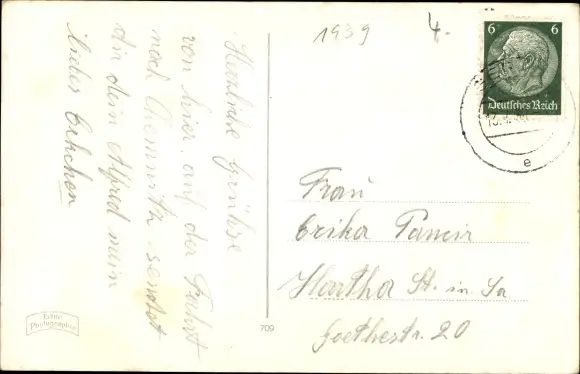 Herzliche Grüsse
von hier auf der Fahrt
nach Chemnitz sendet
dir dein Alfred mein
liebes
1939
4.-
6 6
Deutsches Reich
e
Frau
Erika
Hartha St. in Sa
Goethestr. 20
709
Echte
Photographie